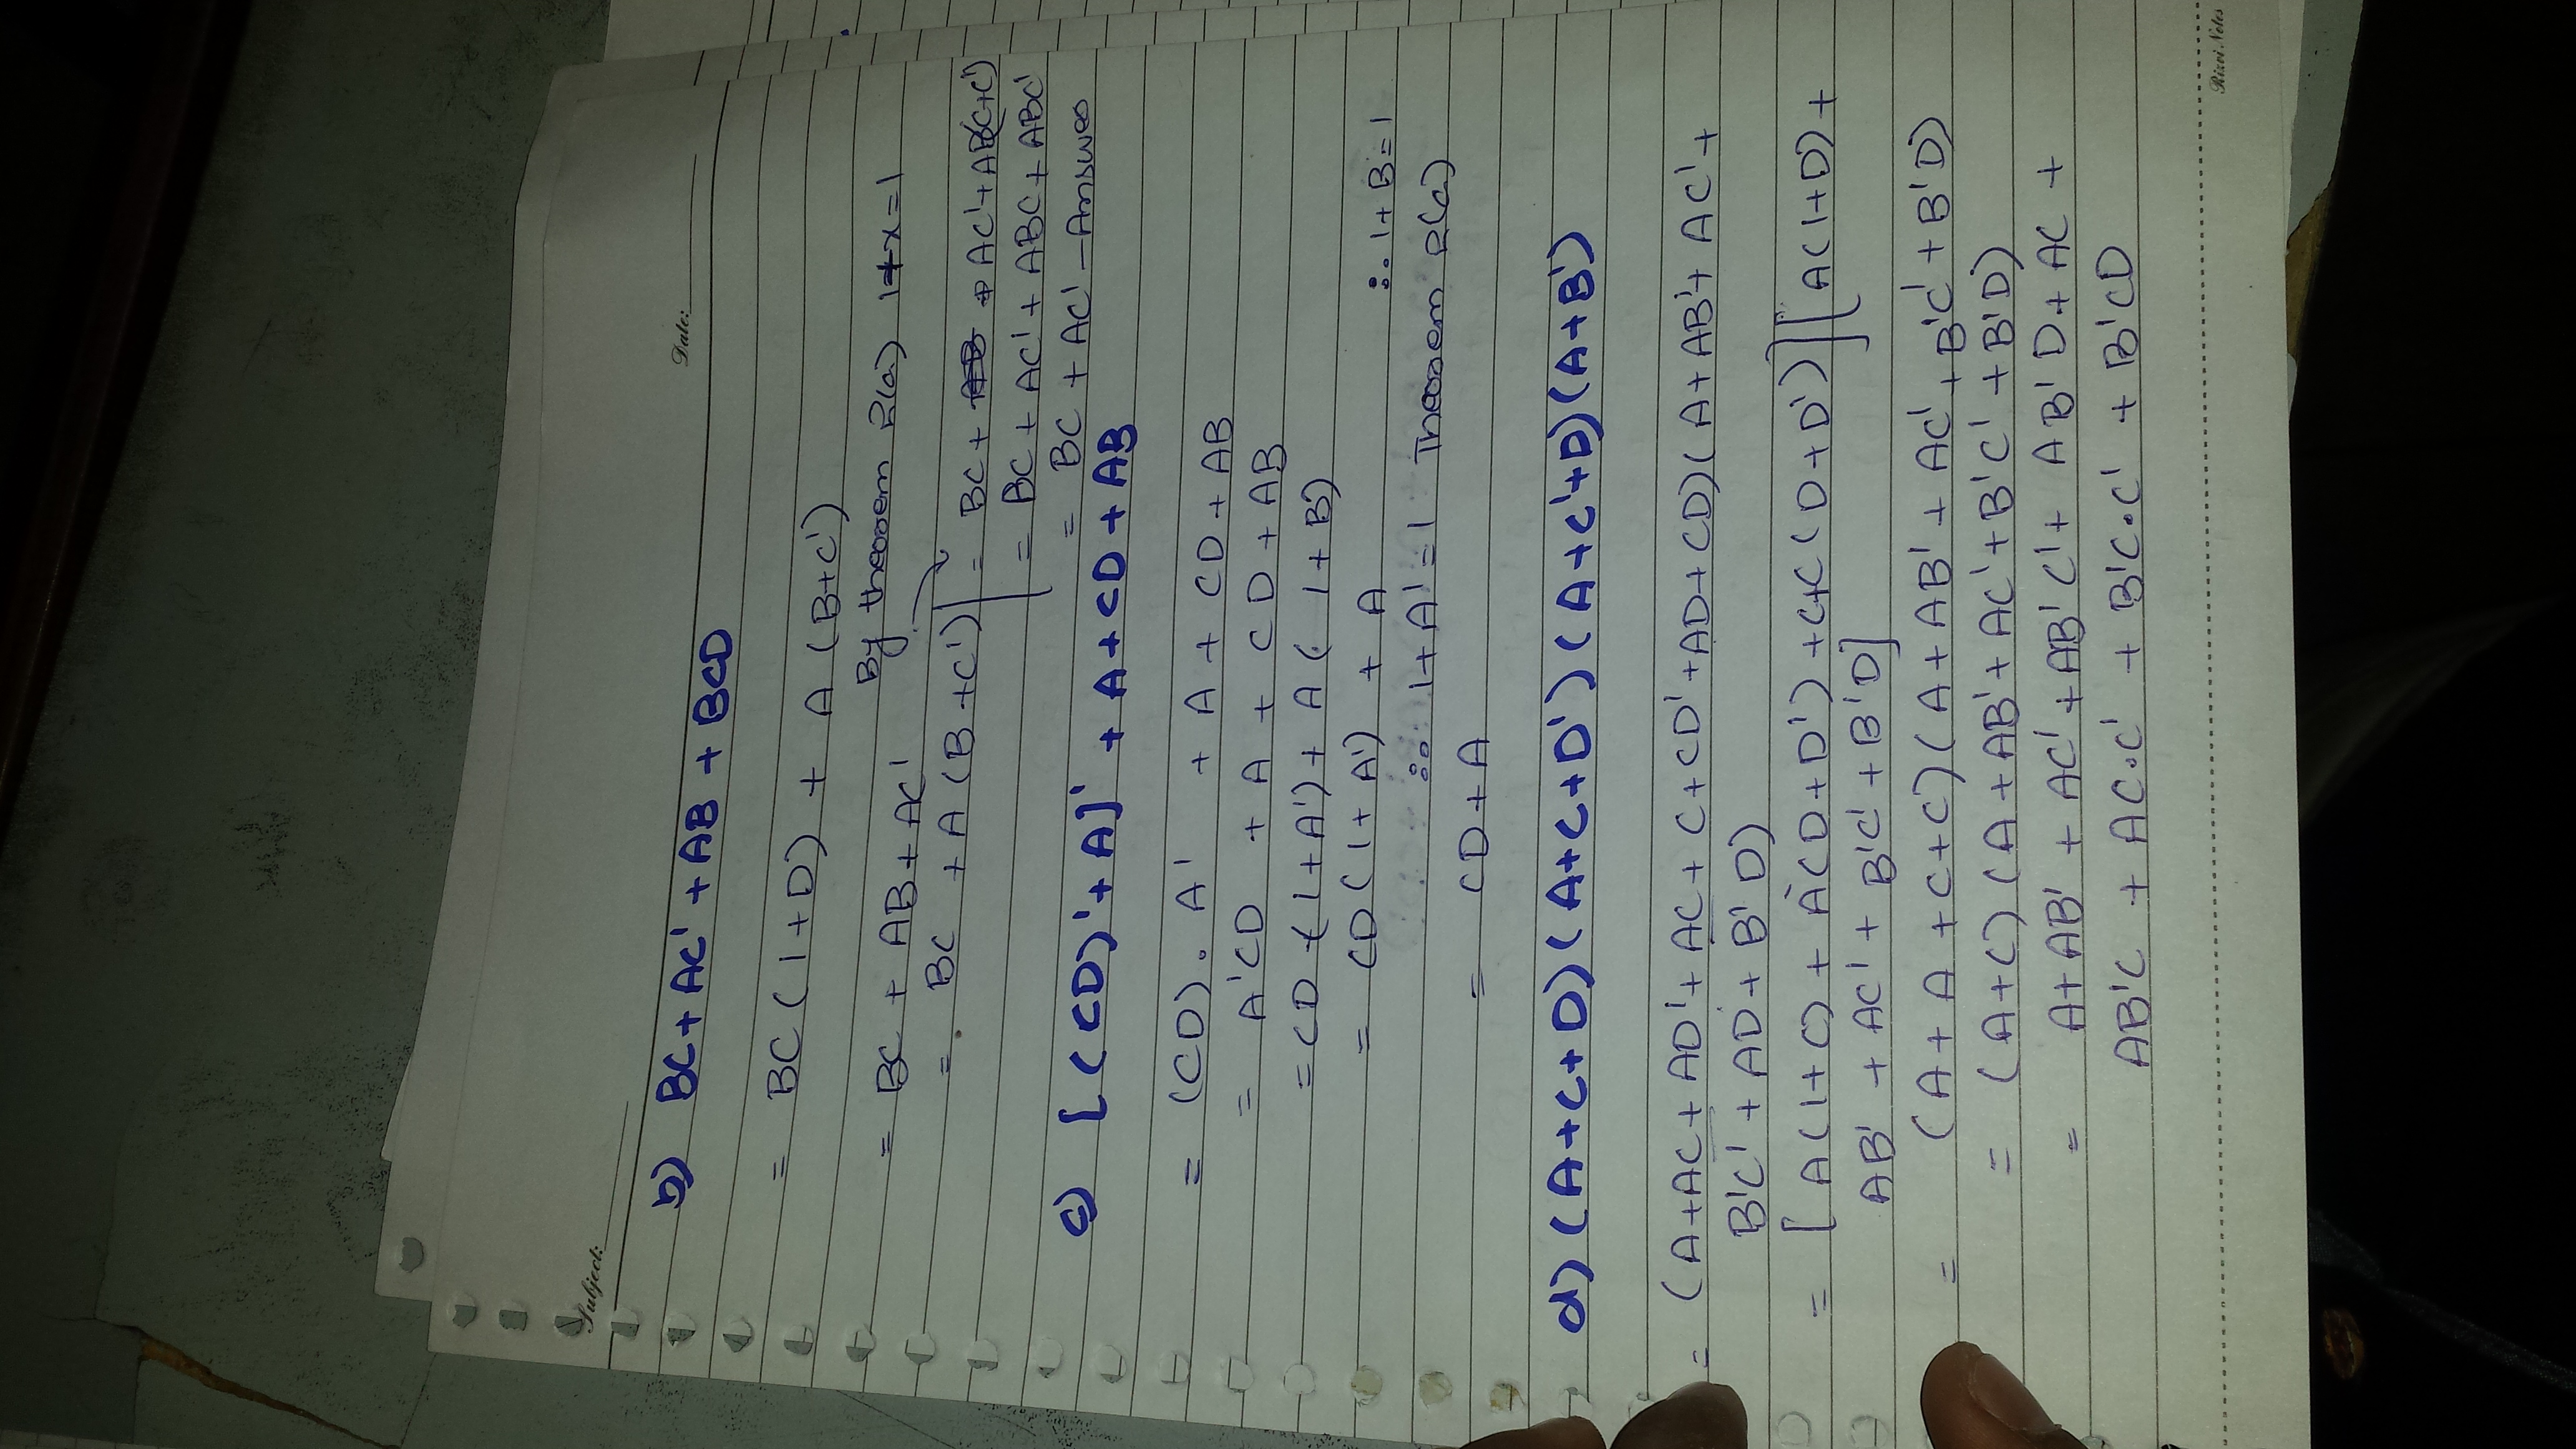 Subject:
Date:
b) BC + AC' + AB + BCD
= BC (1+D) + A (B+C')
By theorem 2(a) 1+x=1
= BC + AB + AC'
= BC + A (B + C') = BC + + AC' + AB(C+C')
= BC + AC' + ABC + ABC'
= BC + AC' - Answer
c) [(CD)' + A]' + A + CD + AB
= (CD). A' + A + CD + AB
= A'CD + A + CD + AB
= CD (1+A') + A (1+B)
∴ 1+B=1
= CD (1+A') + A
∴ 1+A'=1 Theorem 2(a)
= CD + A
d) (A+C+D) (A+C+D') (A+C'+D) (A+B')
= (A+AC + AD' + AC + C + CD' + AD + CD) (A + AB' + AC' +
B'C' + AD + B'D)
= [A(1+C) + A(D+D') + C+C (D+D')] [A(1+D) +
AB' + AC' + B'C' + B'D]
= (A + A + C+C) (A + AB' + AC' + B'C' + B'D)
= (A+C) (A + AB' + AC' + B'C' + B'D)
= A + AB' + AC' + AB'C' + AB'D + AC +
AB'C + AC.C' + B'C.C' + B'CD
Rizvi Notes